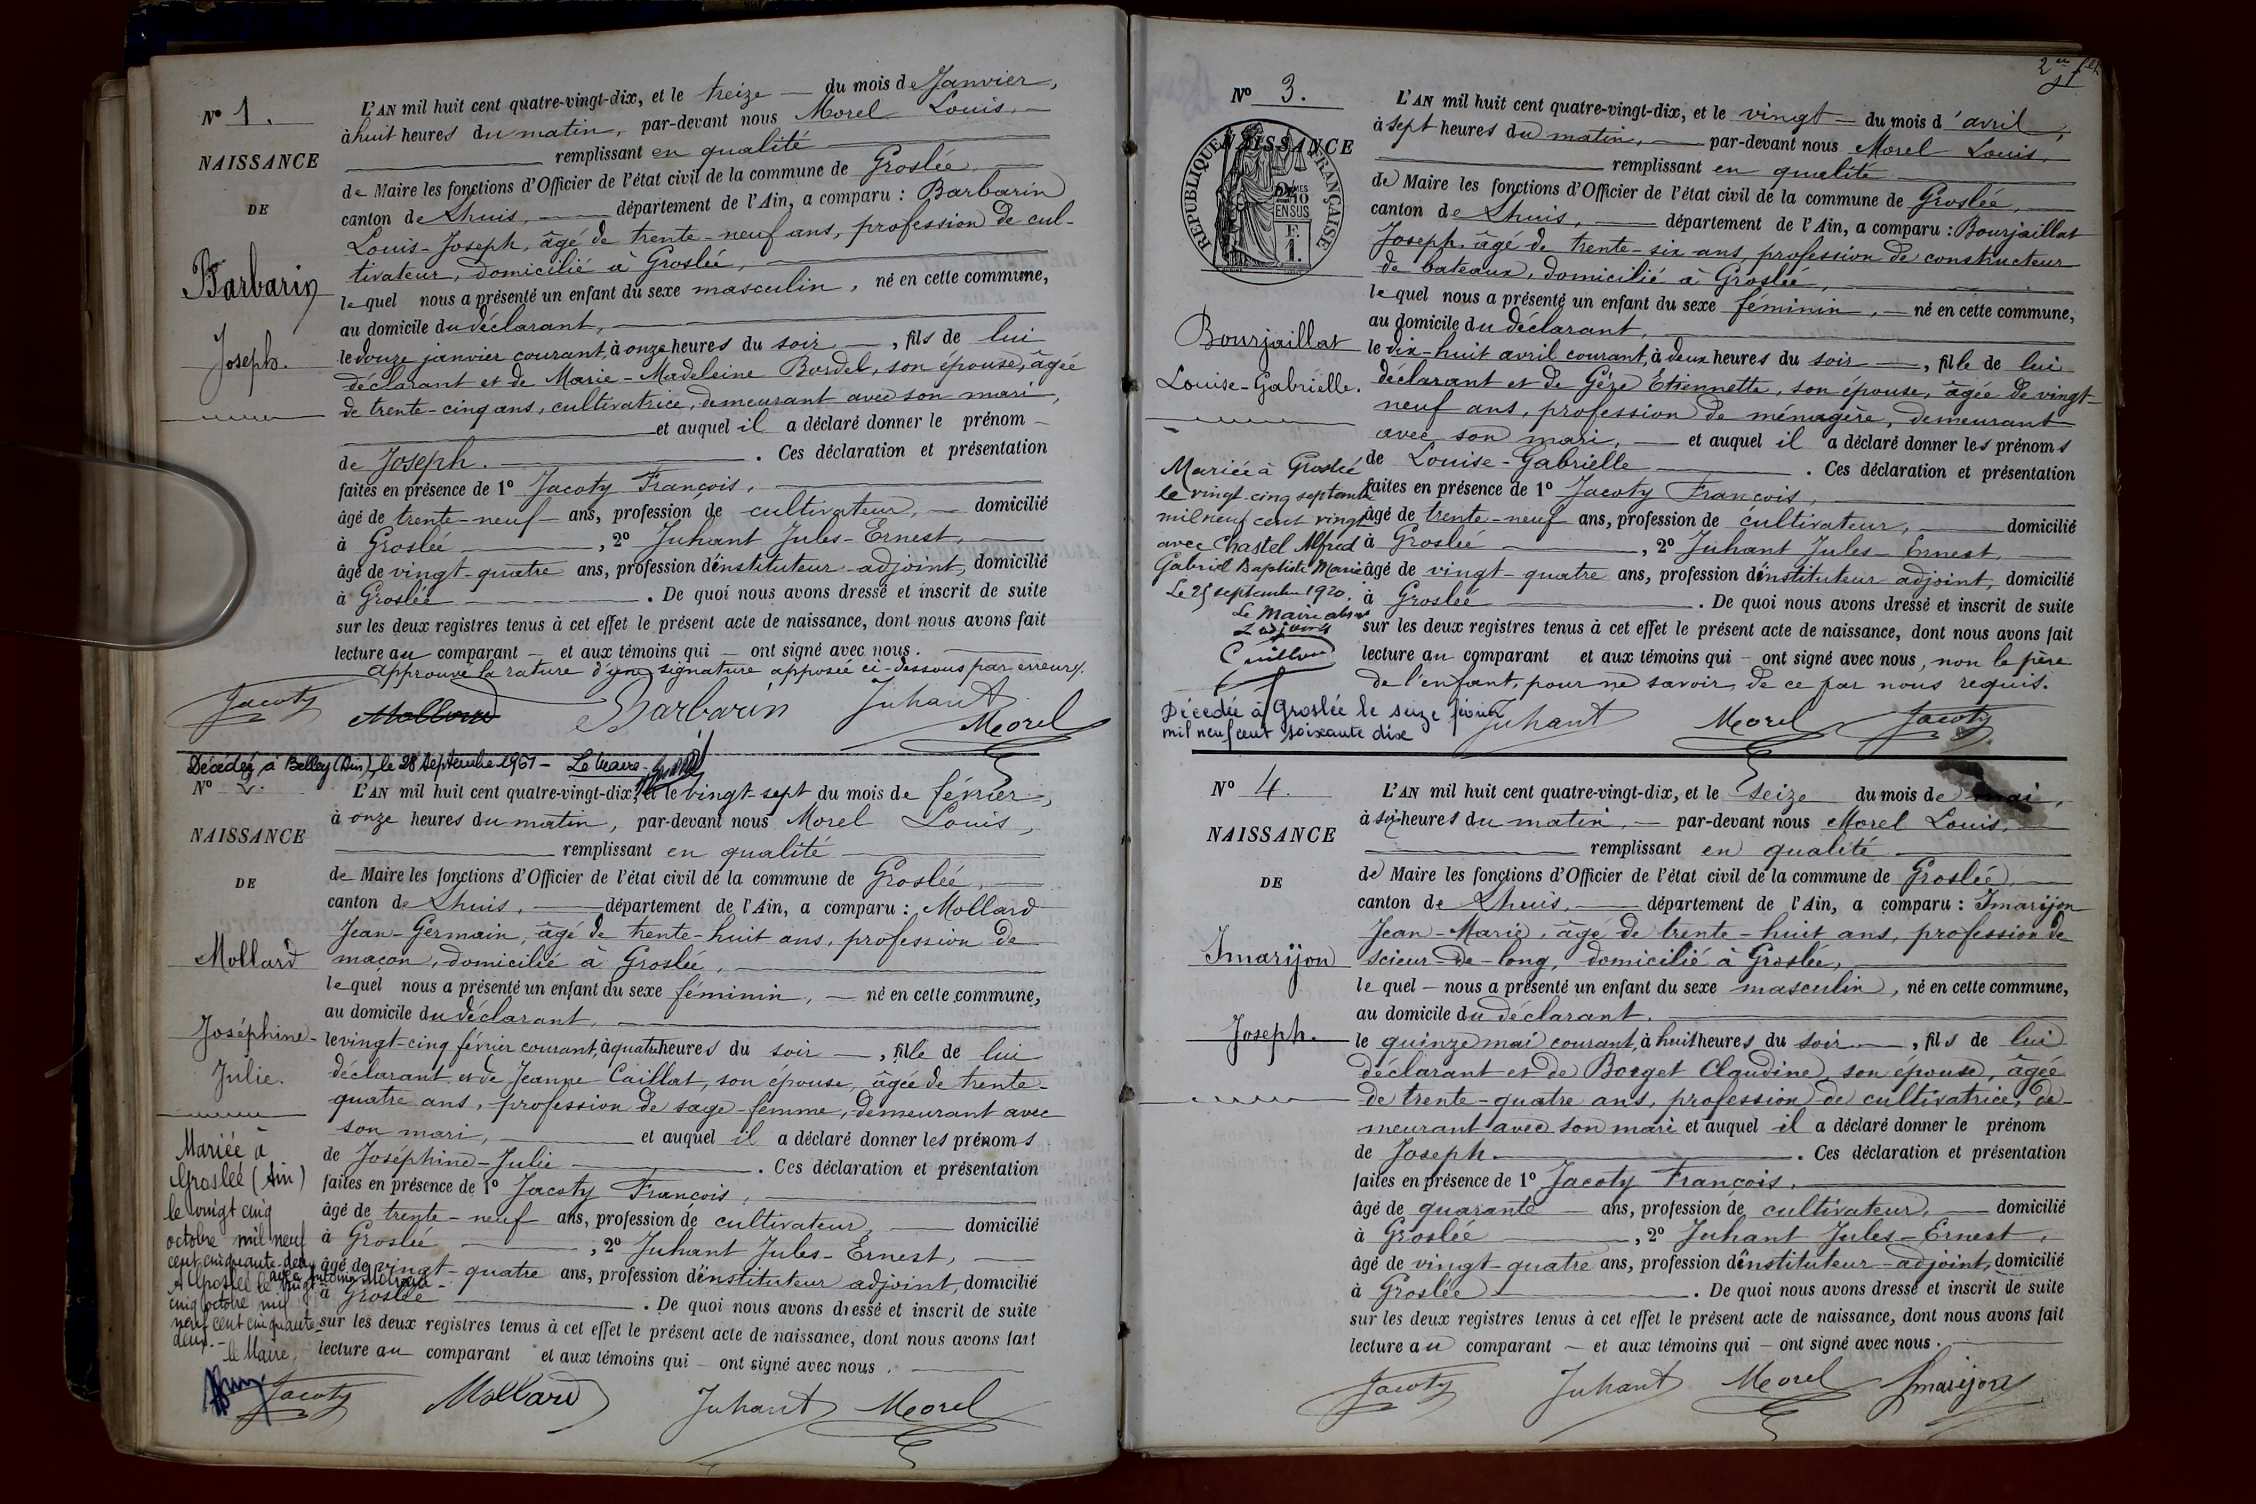 N° 1.
NAISSANCE
DE
Barbarin
Joseph.
L'AN mil huit cent quatre-vingt-dix, et le treize — du mois de Janvier,
à huit heures du matin, par-devant nous Morel Louis,
remplissant en qualité
de Maire les fonctions d'Officier de l'état civil de la commune de Groslée,
canton de Lhuis, — département de l'Ain, a comparu : Barbarin
Louis-Joseph, âgé de trente-neuf ans, profession de cul-
tivateur, domicilié à Groslée,
lequel nous a présenté un enfant du sexe masculin, né en cette commune,
au domicile du déclarant,
le douze janvier courant, à onze heures du soir —, fils de lui
déclarant et de Marie-Madeleine Bordel, son épouse, âgée
de trente-cinq ans, cultivatrice, demeurant avec son mari,
et auquel il a déclaré donner le prénom
de Joseph. — . Ces déclaration et présentation
faites en présence de 1° Jacoty François,
âgé de trente-neuf ans, profession de cultivateur, — domicilié
à Groslée —, 2° Juhant Jules-Ernest,
âgé de vingt-quatre ans, profession d'instituteur-adjoint, domicilié
à Groslée — . De quoi nous avons dressé et inscrit de suite
sur les deux registres tenus à cet effet le présent acte de naissance, dont nous avons fait
lecture au comparant — et aux témoins qui — ont signé avec nous.
Approuvé la rature d'une signature apposée ci-dessous par erreur.
Jacoty Mollard Barbarin Juhant
Morel
Décédée à Belley (Ain), le 28 Septembre 1961 - Le Maire
N° 2.
NAISSANCE
DE
Mollard
Joséphine-
Julie.
Mariée à
Groslée (Ain)
le vingt cinq
octobre mil neuf
cent cinquante-deux
A Groslée le vingt
cinq octobre mil
neuf cent cinquante
deux.-
le Maire,
L'AN mil huit cent quatre-vingt-dix, et le vingt-sept du mois de février,
à onze heures du matin, par-devant nous Morel Louis,
remplissant en qualité
de Maire les fonctions d'Officier de l'état civil de la commune de Groslée,
canton de Lhuis, — département de l'Ain, a comparu : Mollard
Jean-Germain, âgé de trente-huit ans, profession de
maçon, domicilié à Groslée,
lequel nous a présenté un enfant du sexe féminin, — né en cette commune,
au domicile du déclarant,
le vingt-cinq février courant, à quatre heures du soir —, fille de lui
déclarant et de Jeanne Caillat, son épouse, âgée de trente-
quatre ans, profession de sage-femme, demeurant avec
son mari, — et auquel il a déclaré donner les prénoms
de Joséphine-Julie — . Ces déclaration et présentation
faites en présence de 1° Jacoty François,
âgé de trente-neuf ans, profession de cultivateur, — domicilié
à Groslée —, 2° Juhant Jules-Ernest,
âgé de vingt-quatre ans, profession d'instituteur adjoint, domicilié
à Groslée — . De quoi nous avons dressé et inscrit de suite
sur les deux registres tenus à cet effet le présent acte de naissance, dont nous avons fait
lecture au comparant et aux témoins qui — ont signé avec nous.
Jacoty Mollard Juhant Morel
N° 3.
NAISSANCE
RÉPUBLIQUE FRANÇAISE
Bourjaillat
Louise-Gabrielle.
Mariée à Groslée
le vingt-cinq septembre
mil neuf cent vingt
avec Chastel Alfred
Gabriel Baptiste Marie
Le 25 septembre 1920.
Le Maire absent
L'adjoint
Décédée à Groslée le seize février
mil neuf cent soixante dix
L'AN mil huit cent quatre-vingt-dix, et le vingt — du mois d'avril,
à sept heures du matin, — par-devant nous Morel Louis,
remplissant en qualité
de Maire les fonctions d'Officier de l'état civil de la commune de Groslée,
canton de Lhuis, — département de l'Ain, a comparu : Bourjaillat
Joseph, âgé de trente-six ans, profession de constructeur
de bateaux, domicilié à Groslée,
lequel nous a présenté un enfant du sexe féminin, — né en cette commune,
au domicile du déclarant,
le dix-huit avril courant, à deux heures du soir —, fille de lui
déclarant et de Gèze Etiennette, son épouse, âgée de vingt-
neuf ans, profession de ménagère, demeurant
avec son mari, — et auquel il a déclaré donner les prénoms
de Louise-Gabrielle — . Ces déclaration et présentation
faites en présence de 1° Jacoty François,
âgé de trente-neuf ans, profession de cultivateur, — domicilié
à Groslée —, 2° Juhant Jules-Ernest,
âgé de vingt-quatre ans, profession d'instituteur adjoint, domicilié
à Groslée — . De quoi nous avons dressé et inscrit de suite
sur les deux registres tenus à cet effet le présent acte de naissance, dont nous avons fait
lecture au comparant et aux témoins qui — ont signé avec nous, non le père
de l'enfant, pour ne savoir, de ce par nous requis.
Juhant Morel Jacoty
N° 4.
NAISSANCE
DE
Imarijon
Joseph.
L'AN mil huit cent quatre-vingt-dix, et le seize du mois de mai,
à six heures du matin, — par-devant nous Morel Louis,
remplissant en qualité
de Maire les fonctions d'Officier de l'état civil de la commune de Groslée,
canton de Lhuis, — département de l'Ain, a comparu : Imarijon
Jean-Marie, âgé de trente-huit ans, profession de
scieur-de-long, domicilié à Groslée,
lequel — nous a présenté un enfant du sexe masculin, né en cette commune,
au domicile du déclarant.
le quinze mai courant, à huit heures du soir —, fils de lui
déclarant et de Borget Claudine, son épouse, âgée
de trente-quatre ans, profession de cultivatrice, de-
meurant avec son mari et auquel il a déclaré donner le prénom
de Joseph — . Ces déclaration et présentation
faites en présence de 1° Jacoty François,
âgé de quarante — ans, profession de cultivateur, — domicilié
à Groslée —, 2° Juhant Jules-Ernest,
âgé de vingt-quatre ans, profession d'instituteur-adjoint, domicilié
à Groslée — . De quoi nous avons dressé et inscrit de suite
sur les deux registres tenus à cet effet le présent acte de naissance, dont nous avons fait
lecture au comparant — et aux témoins qui — ont signé avec nous.
Jacoty Juhant Morel Imarijon